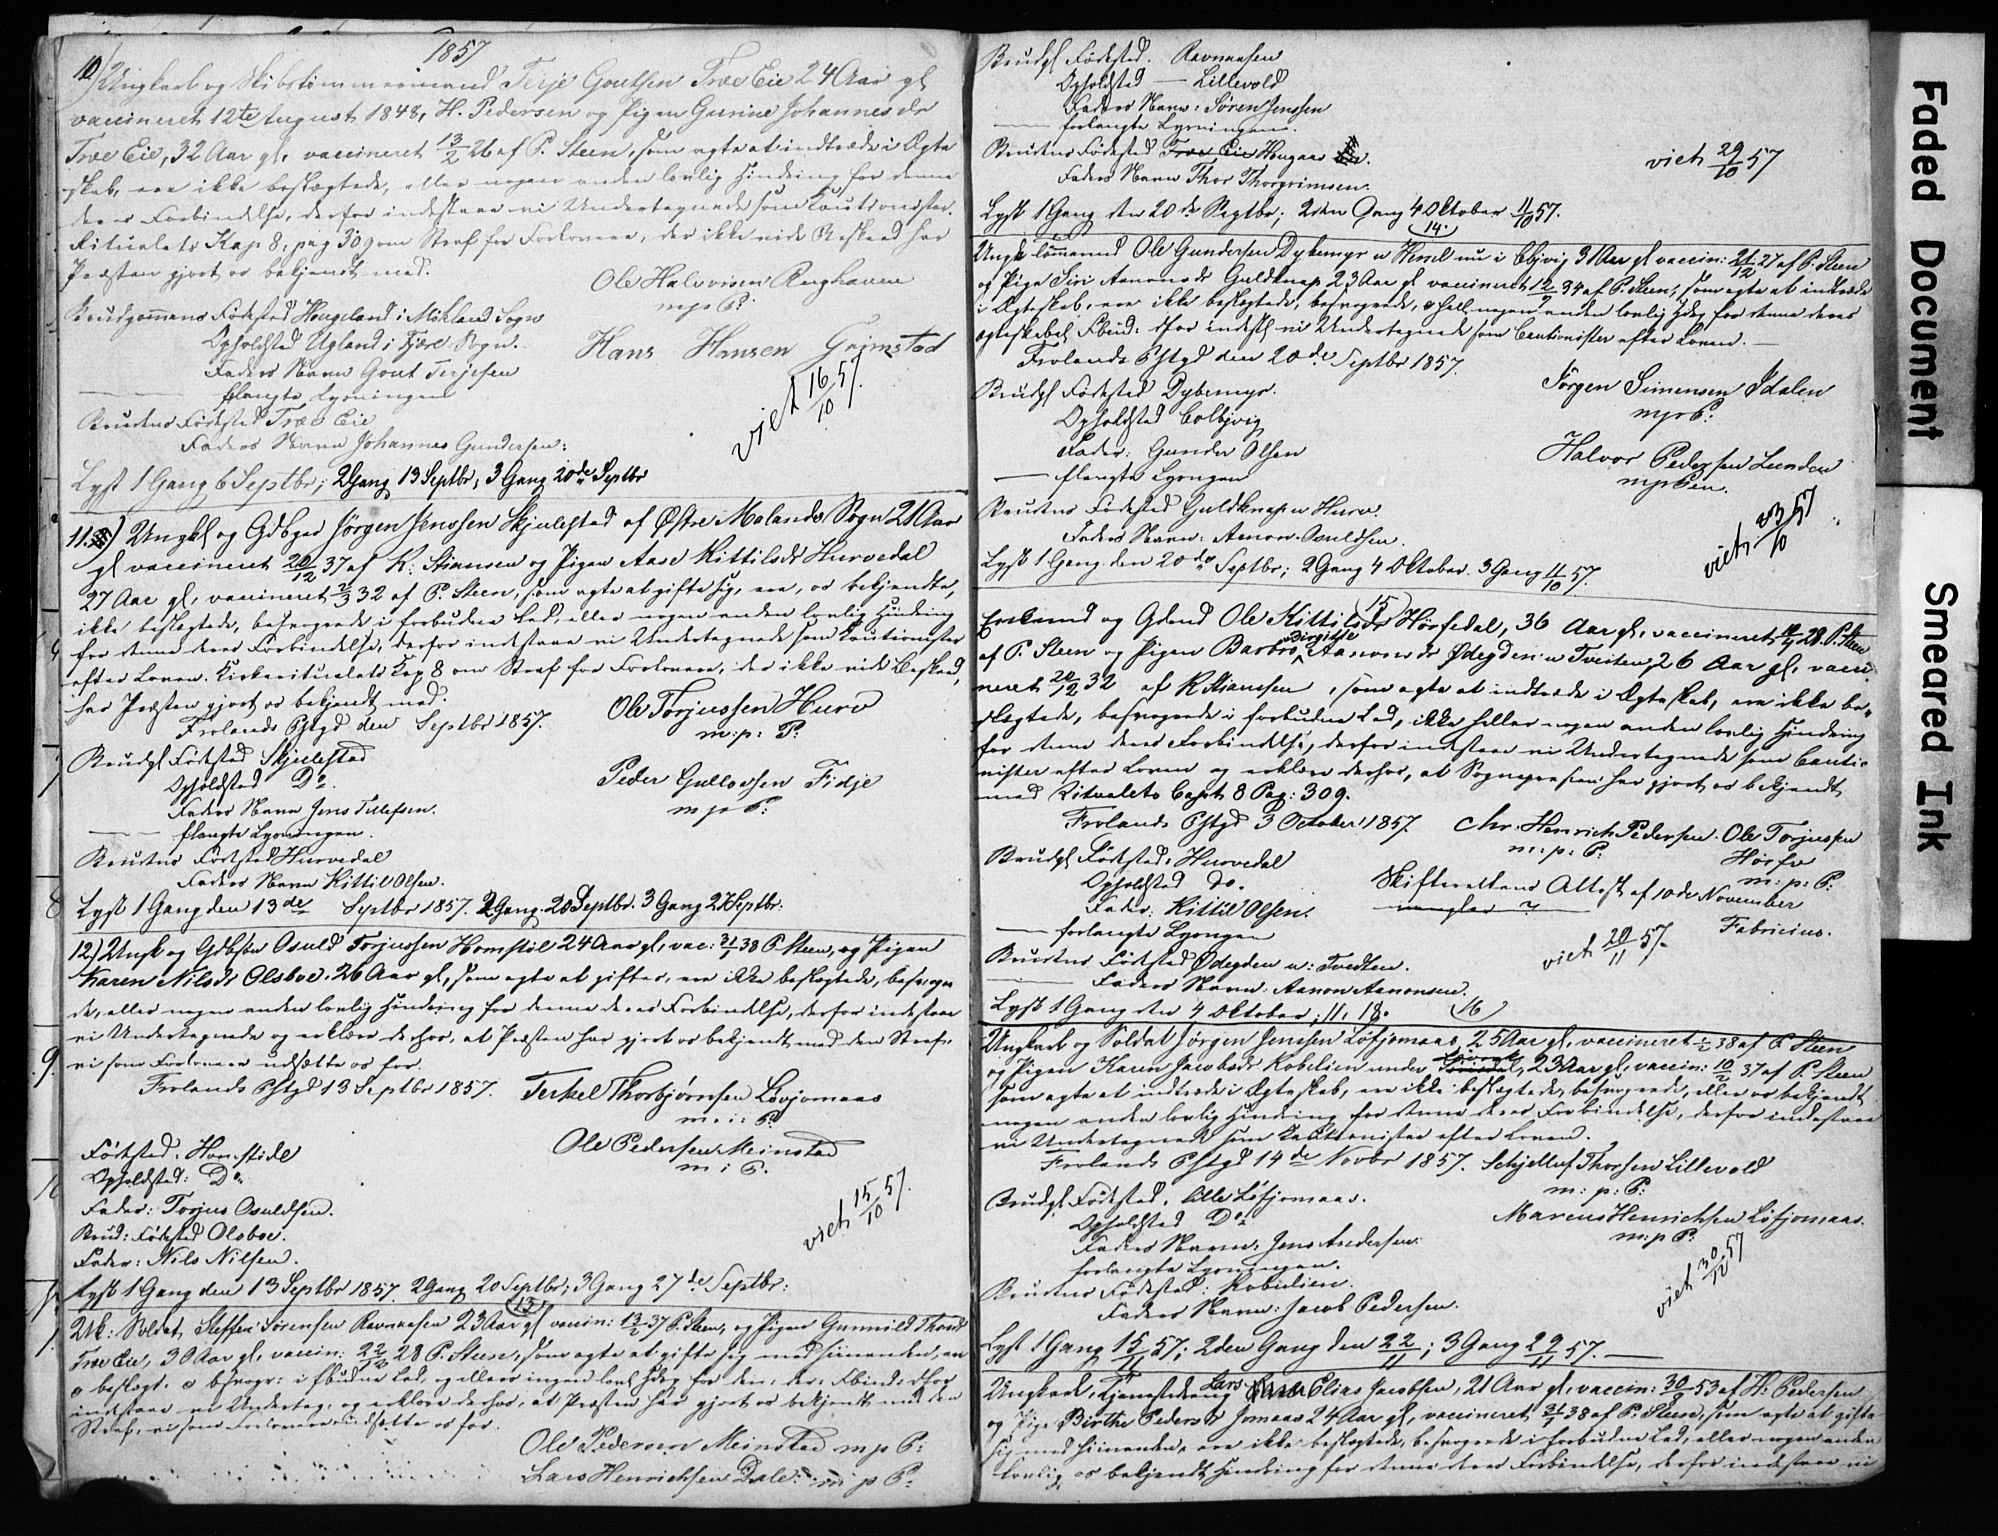 1857
10) Ungkarl og Skibstømmermand Terje Goutsen Træ Eie 24 Aar gl
vaccineret 12te August 1848, H. Pedersen og Pigen Gurine Johannesdr
Træ Eie, 32 Aar gl, vaccineret 13/2 26 af P. Steen, som agte at indtræde i Ægte
skab, ere ikke beslægtede, eller nogen anden lovlig Hindring for denne
deres Forbindelse, derfor indestaae vi Undertegnede som Cautionister.
Ritualets Kap 8, pag 309 om Straf for Forlovere, der ikke vide Besked har
Præsten gjort os bekjendt med.
Ole Halvorsen Røghaven
m p P:
Brudgommens Fødested Hougeland i Mökland Sogn
Opholdsted Ugland i Fjære Sogn.
Hans Hansen Grimstad
Faders Navn Gout Terjesen
flangte Lysningen
viet 16/10 57.
Brudens Fødested Træ Eie
Faders Navn Johannes Gundersen:
Lyst 1 Gang 6 Septbr; 2 Gang 13 Septbr; 3 Gang 20de Septbr
11.) Ungkl og Gdbgr Jørgen Jenssen Skjulestad af Østre Molands Sogn 21 Aar
gl vaccineret 20/12 37 af K: Stiansen og Pigen Aase Kittilsdr Hurvedal
27 Aar gl, vaccineret 2/3 32 af P. Steen, som agte at gifte sig, ere, os bekjendte,
ikke beslægtede, besvogrede i forbudne Led, eller nogen anden lovlig Hindring
for denne deres Forbindelse, derfor indestaae vi Undertegnede som Cautionister
efter Loven. Kirkeritualets Kap 8 om Straf for Forlovere, der ikke vide Besked,
har Præsten gjort os bekjendt med.
Frolands Pstgd den Septbr 1857.
Ole Torjussen Hurv
m: p: P:
Brudgl Fødested Skjulestad
Opholdsted Do.
Peder Gullovsen Fidje
m p P:
Faders Navn Jens Tellefsen.
flangte Lysningen.
Brudens Fødested Hurvedal
Faders Navn Kittil Olsen.
Lyst 1 Gang den 13de Septbr 1857. 2 Gang 20 Septbr. 3 Gang 27 Septbr:
12.) Ungk og Gdbsøn Osuld Torjussen Homstöl 24 Aar gl, vac: 31/1 38 P. Steen, og Pigen
Karen Nilsdr Olsboe. 26 Aar gl, som agte at giftes, ere ikke beslægtede, besvogre
de, eller nogen anden lovlig Hindring for denne deres Forbindelse, derfor indestaae
vi Undertegnede og erklære derhos, at Præsten har gjort os bekjendt med den Straf,
vi som Forlovere udsætte os for.
Frolands Pstgd 13 Septbr 1857.
Terkel Thorbjørnsen Løvjomaas
m: i: P:
Ole Pedersen Meinstad
m i P.
Fødested. Homstöl
Opholdsted: Do.
Fader: Torjus Osuldsen.
viet 15/10 57.
Brud: Fødested Olsboe.
Fader: Nils Nilsen.
Lyst 1 Gang den 13 Septbr 1857. 2 Gang 20 Septbr; 3 Gang 27de Septbr:
13
Uk: Soldat, Steffen Sørensen Ravnaasen 23 Aar gl vaccin: 13/2 37 P. Steen, og Pigen Gunnild Thorsd
Træ Eie, 30 Aar gl, vaccin: 22/12 28 P. Steen, som agte at gifte sig med hinanden, ere
Straf, vi som Forlovere udsætte os for.
Ole Pedersen Meinstad m p P:
Lars Henrichsen Dale: m p P:
Brudgl Fødested. Ravnaasen
Opholdsted — Lillevold
Faders Navn: Sören Jenssen
forlangte Lysningen.
Brudens Fødested Træ Eie Hougaas
viet 29/10 57
Faders Navn Thor Thorgrimsen.
Lyst 1 Gang den 20de Septbr; 2den Gang 4 Oktober 11/10 57.
14.
Ungk lömmend Ole Gundersen Dybemyr u Hessel nu i Elgvig 31 Aar gl vaccin: 21/12 27 af P. Steen
og Pige Siri Aanonsdr Guldknap 23 Aar gl vaccineret 12/9 34 af P. Steen, som agte at indtræde
i Ægteskab, ere ikke beslægtede, besvogrede, ei hell. nogen anden lovlig Hdrg for denne deres
ægteskabel. Fbind: dfor indestl vi Undertegnede som Cautionister efter Loven. —
Frolands Pstgd den 20de Septbr 1857.
Jörgen Simensen Idalen
m p P:
Brudgl Fødested Dybemyr.
Opholdsted Colbjvig
Fader: Gunder Olsen
Halvor Pedersen Lunden
m p Pen.
flangte Lysngen
Brudens Fødested Guldknap u Hurv.
viet 23/10 57
Faders Navn: Aanon Osuldsen.
Lyst 1 Gang den 20de Septbr; 2 Gang 4 Oktober. 3 Gang 11/10 57.
15
Enkemd og Gdmd Ole Kittilsdr Hörfedal, 36 Aar gl, vaccineret 28. P. Steen
af P. Steen og Pigen Barbro Birgitte Aanonsdr Ødegden u Tveiten, 26 Aar gl, vacci
neret 20/12 32 af K Stianssen, som agte at indtræde i Ægteskab, ere ikke be-
slægtede, besvogrede i forbudne Led, ikke heller nogen anden lovlig Hindring
for denne deres Forbindelse, derfor indestaae vi Undertegnede som Cauti-
nister efter Loven og erklære derhos, at Sognepræsten har gjort os bekjendt
med Ritualets Capt 8 Pag: 309.
Frolands Pstgd 3 October 1857.
Chr. Henrich Pedersen. Ole Torjussen
m: p: P: Hörfve
m: p: P:
Brudgl Fødested. Hurvedal
Opholdsted Do.
Skifterettens Attest af 10de November
mangler ?
Fader: Kittil Olsen.
forlangte Lysngen
Fabricius.
Brudens Fødested Ødegden u: Tvedten.
viet 20/11 57.
Faders Navn: Aanon Aanonsen.
Lyst 1 Gang den 4 Oktober; 11. 18.
16
Ungkarl og Soldat Jörgen Jenssen Løfjomaas, 25 Aar gl, vaccineret 1/2 38 af P. Steen
og Pigen Karen Jacobsdr Robelien under 23 Aar gl, vaccin: 10/2 37 af P. Steen
som agte at indtræde i Ægteskab, ere ikke beslægtede, besvogrede, eller os bekjendt
nogen anden lovlig Hindring for denne deres Forbindelse, derfor indestaae
vi Undertegnede som Cautionister efter Loven.
Frolands Pstgd 14de Novbr 1857.
Schjelluf Thorsen Lillevold
m: p: P:
Brudgl Fødested. Lille Løfjomaas.
Opholdsted Do.
Marcus Henrichsen Løfjomaas.
m: p P.
Faders Navn. Jens Andersen.
forlangte Lysningen.
Brudens Fødested: Robelien.
viet 30/12 57
Faders Navn: Jacob Pedersen.
Lyst 1 Gang 15/11 57; 2den Gang den 22/11; 3 Gang 29/11 57.
17
Ungkarl, Tjenestedreng Lars Elias Jacobsen, 21 Aar gl, vaccin: 30/9 53 af H: Pedersen
og Pige Birthe Pedersdr Jomaas 24 Aar gl, vaccineret 31/1 38 af P. Steen, som agte at gifte
sig med hinanden, ere ikke beslægtede, besvogrede i forbudne Led, eller nogen anden
lovlig, os bekjendt Hindring for denne deres Forbindelse, derfor indestaae vi
Faded Document
Smeared Ink